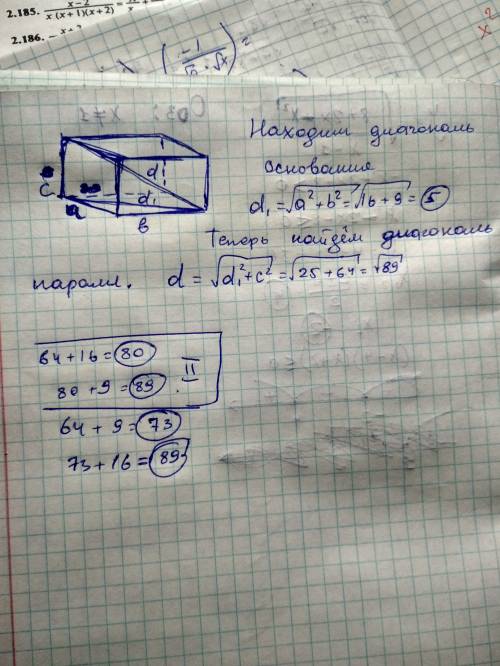 2.185. x-2 / x(x+1)(x+2) =
2.186.
(-1 / √a · √x)²
x²
Находим диагональ
основания
d₁ = √a²+b² = √16+9 = 5
Теперь найдём диагональ
d = √d₁²+c² = √25+64 = √89
c
a
b
d
d₁
64+16=80
80+9=89. II
64+9=73
73+16=89